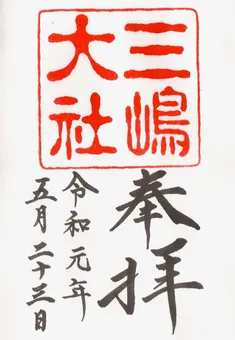 三嶋
大社
奉拝
令和元年
五月二十三日